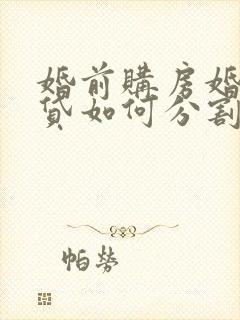 婚前購房婚
貸如何分割
帕勞